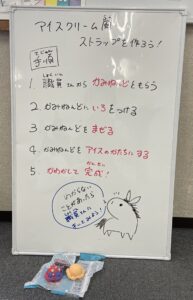 アイスクリーム風
ストラップを作ろう!
てじゅん
手順
しょくいん
1 職員さんから かみねんどをもらう
2 かみねんどに いろをつける
3 かみねんどを まぜる
4 かみねんどを アイスのかたちにする
かんせい
5 かわかして 完成!
いろがくない
ことがあったら
職員さんに
きいてみよう!